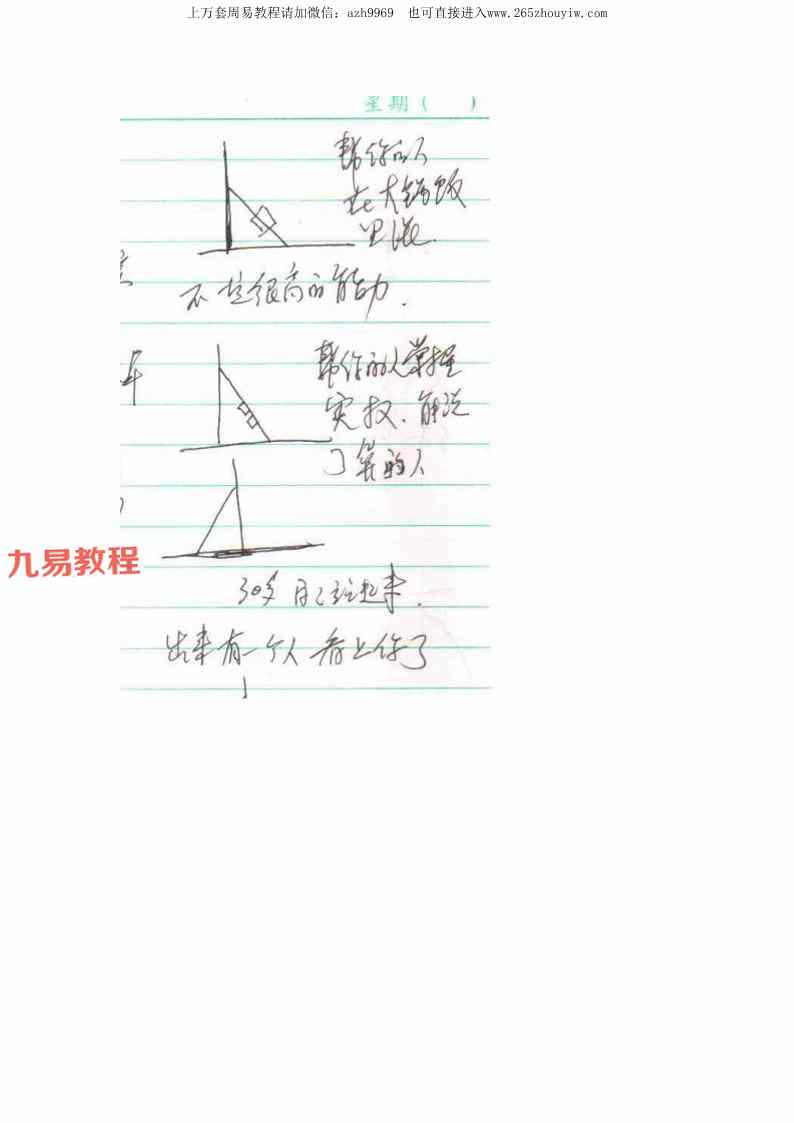 上万套周易教程请加微信：azh9969 也可直接进入www.265zhouyiw.com
星期( )
帮你的人
在大锅饭
里混.
不是很高的能力.
帮你的人掌握
实权.能说
了算的人
九易教程
30岁 站起来.
出来有一个人看上你了